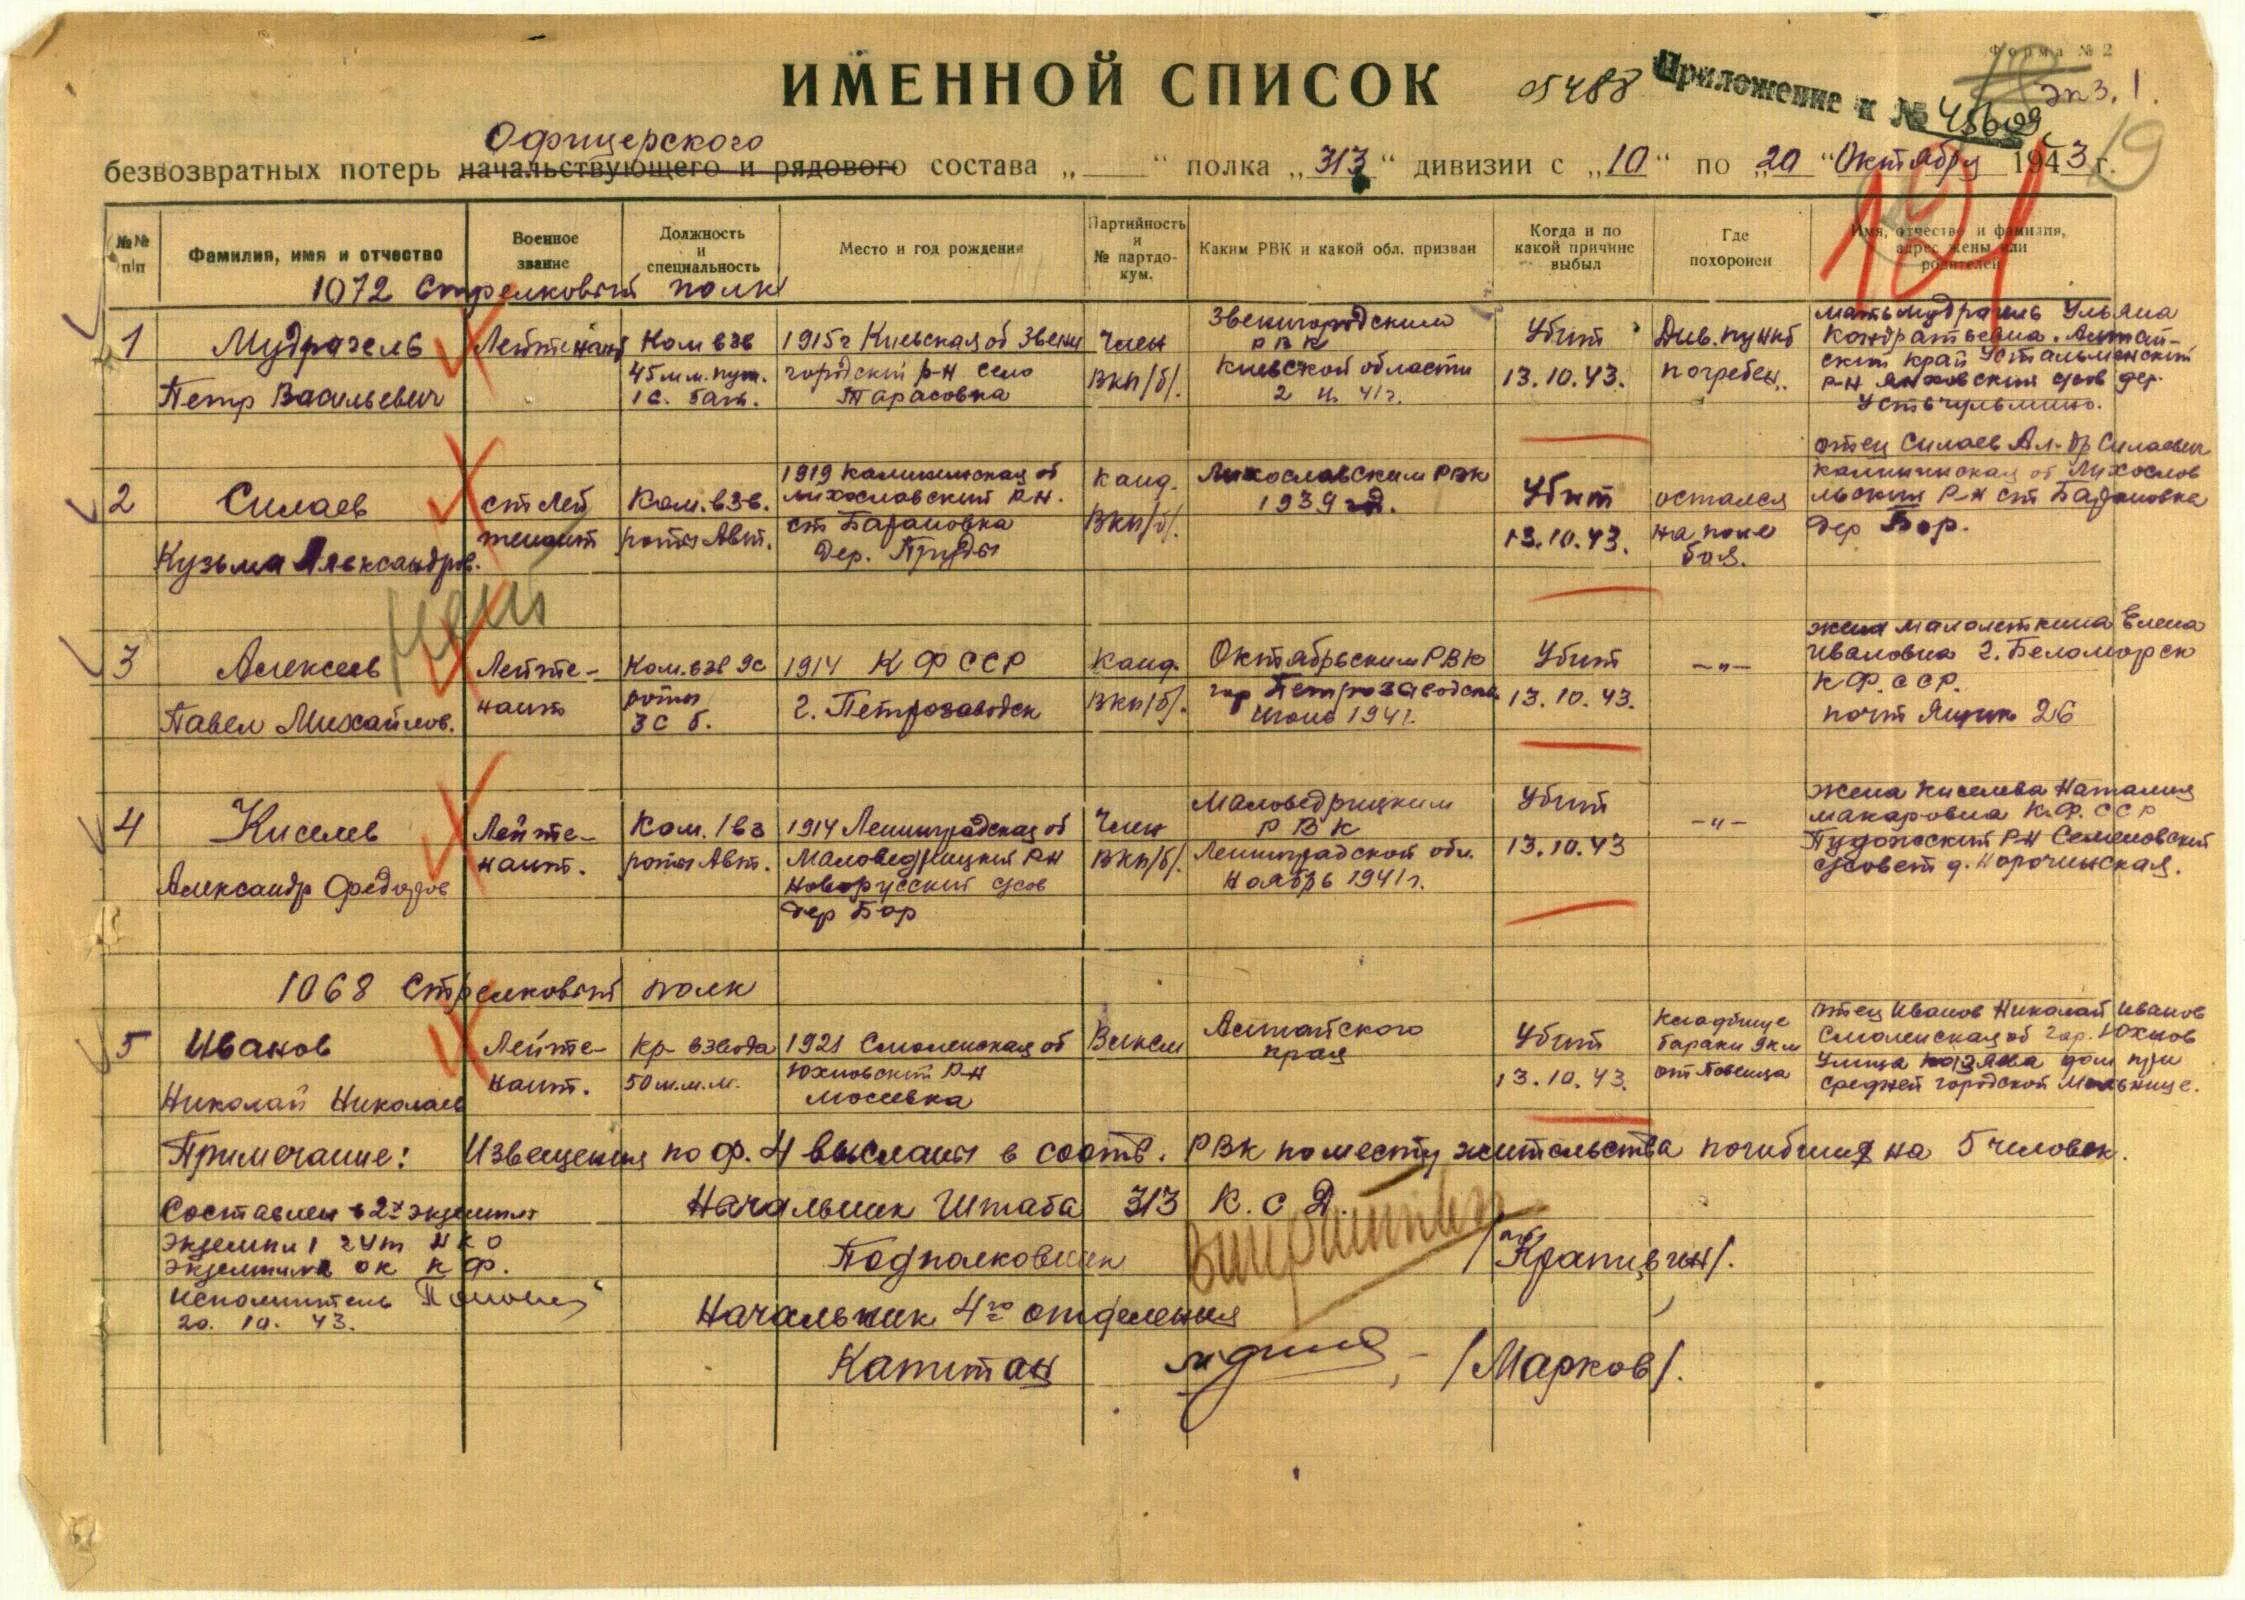 Форма № 2
ИМЕННОЙ СПИСОК
05488
Приложение к №
45609
Экз. 1.
19
Офицерского
безвозвратных потерь начальствующего и рядового состава „ “ полка „313“ дивизии с „10“ по „20“ Октябрь 1943 г.
№№ п/п
Фамилия, имя и отчество
Военное звание
Должность и специальность
Место и год рождения
Партийность и № партдокум.
Каким РВК и какой обл. призван
Когда и по какой причине выбыл
Где похоронен
Имя, отчество и фамилия, адрес жены или родителей
1072 Стрелковый полк
1
Мудрагель
Петр Васильевич
Лейтенант
Ком взв
45 м.м. пуш.
1 с. бат.
1915 г Киевская об Звени
городский р-н село
Тарасовка
Член
ВКП/б/.
Звенигородским
РВК
Киевской области
41 г.
Убит
13.10.43.
Див. пункт
погребен.
Мать Мудрагель Ульяна
Кондратьевна. Алтай-
ский край
р-н сов дер.
2
Силаев
Кузьма Александров.
ст Лей
тенант
Ком. взв.
роты Авт.
1919 Калининская об
Лихославский р-н.
ст Барановка
Дер. Пруды
Канд.
ВКП/б/.
Лихославским РВК
1939 гд.
Убит
13.10.43.
остался
на поле
боя.
отец Силаев Ал-др Силаевич
Калининская об Лихослов
льский Р-н ст Барановка
дер Бор.
3
Алексеев
Павел Михайлов.
Лейте-
нант
Ком. взв 9с
роты
3 с б.
1914 К Ф ССР
г. Петрозаводск
Канд.
ВКП/б/.
Октябрьским РВК
гор Петрозаводска
Июнь 1941 г.
Убит
13.10.43.
—„—
Жена Малолеткина Елена
Ивановна г. Беломорск
К.Ф.ССР.
почт Ящик 26
4
Киселев
Александр Федоров
Лейте-
нант.
Ком. 1 вз
роты Авт.
1914 Ленинградская об
Маловедрицкий р-н
Новорусский с/сов
дер Бор
Член
ВКП/б/.
Маловедрицким
РВК
Ленинградской обл.
Ноябрь 1941 г.
Убит
13.10.43
—„—
Жена Киселева Наталия
Макаровна К.Ф.ССР
Пудожский Р-н Семеновский
с/совет д. Корочинская.
1068 Стрелковый полк
5
Иванов
Николай Николаев
Лейте-
нант.
Кр- взвода
50 м.м.м.
1921 Смоленская об
Юхновский Р-н
Мосеевка
Влксм
Алтайского
края
Убит
13.10.43.
Кладбище
бараки 9 км
от Повенца
Отец Иванов Николай Иванов
Смоленская об гор. Юхнов
Улица дом при
средней городской Мельнице.
Примечание: Извещения по ф. 4 высланы в соотв. РВК по месту жительства погибших на 5 человек.
Составлен в 2х экземпл
Экземпл 1 гуп НКО
Экземпл 2 ок К Ф.
Исполнитель
20. 10. 43.
Начальник Штаба 313 К. С Д.
Подполковник
/Крапивин/.
Начальник 4го отделения
Капитан
/Марков/.